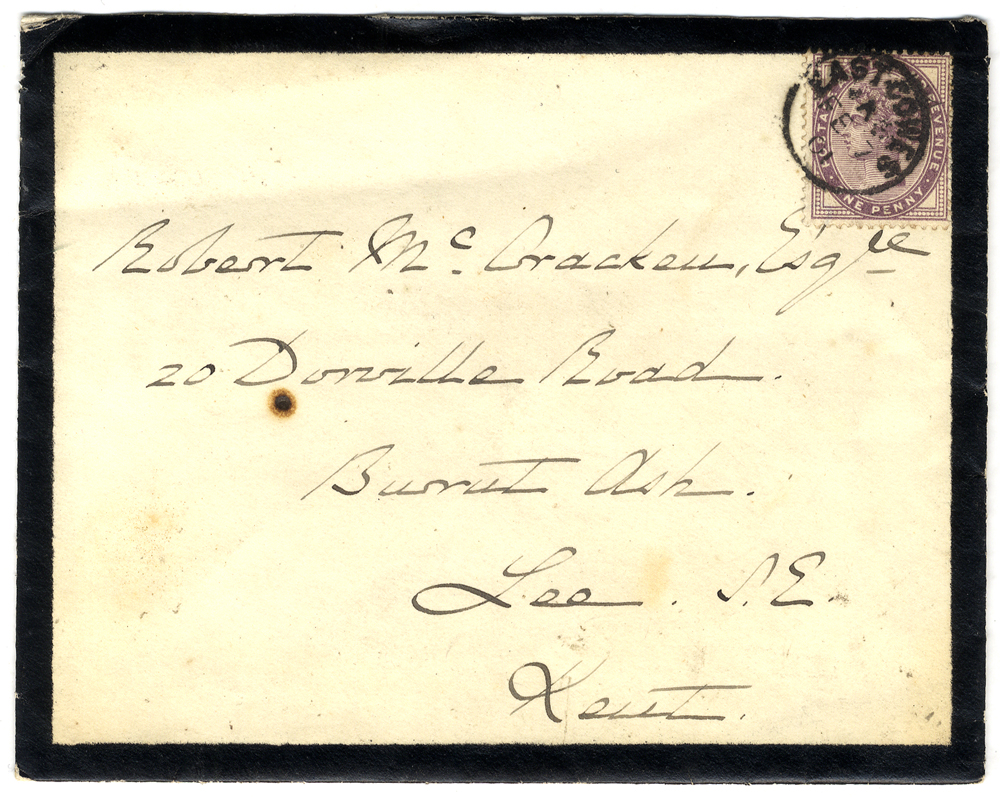 EAST COWES
A
7
01
POSTAGE REVENUE
ONE PENNY
Robert Mc. Cracken, Esqre
20 Dorville Road.
Burnt Ash.
Lee. S.E.
Kent.